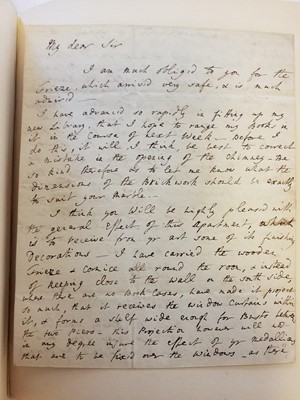 My dear Sir
I am much obliged to you for the
Frieze, which arrived very safe, & is much
admired —
I have advanced so rapidly in fitting up my
new Library, that I hope to range my Books in
it in the Course of next Week — Before I
do this, it will, I think, be best to correct
a mistake in the opening of the Chimney — be
so kind therefore as to let me know what the
dimensions of the Brickwork should be exactly
to suit your Marble —
I think you will be highly pleased with
the general Effect of this Apartment, which
is to receive from yr art some of its
Decorations — I have carried the wooden
Frieze & Cornice all round the room, & instead
of keeping close to the Wall on the south side,
where there are no Book-Cases, have made it project
so much, that it receives the Window Curtains within
it, & forms a shelf wide enough for Busts
the two Piers — this Projection however will
in any degree injure the effect of yr medallions
that are to be fixed over the Windows — as there